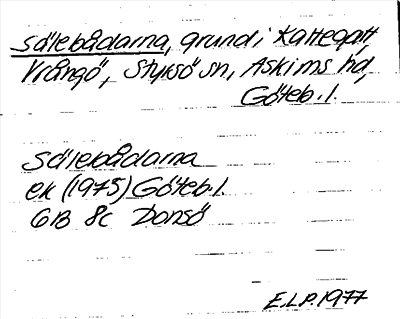 Sälebådarna, grund i Kattegatt,
Vrångö, Styrsö sn, Askims hd,
Göteb. l.
Sälebådarna
ek (1975) Göteb. l.
6B 8c Donsö
E.L.P. 1977